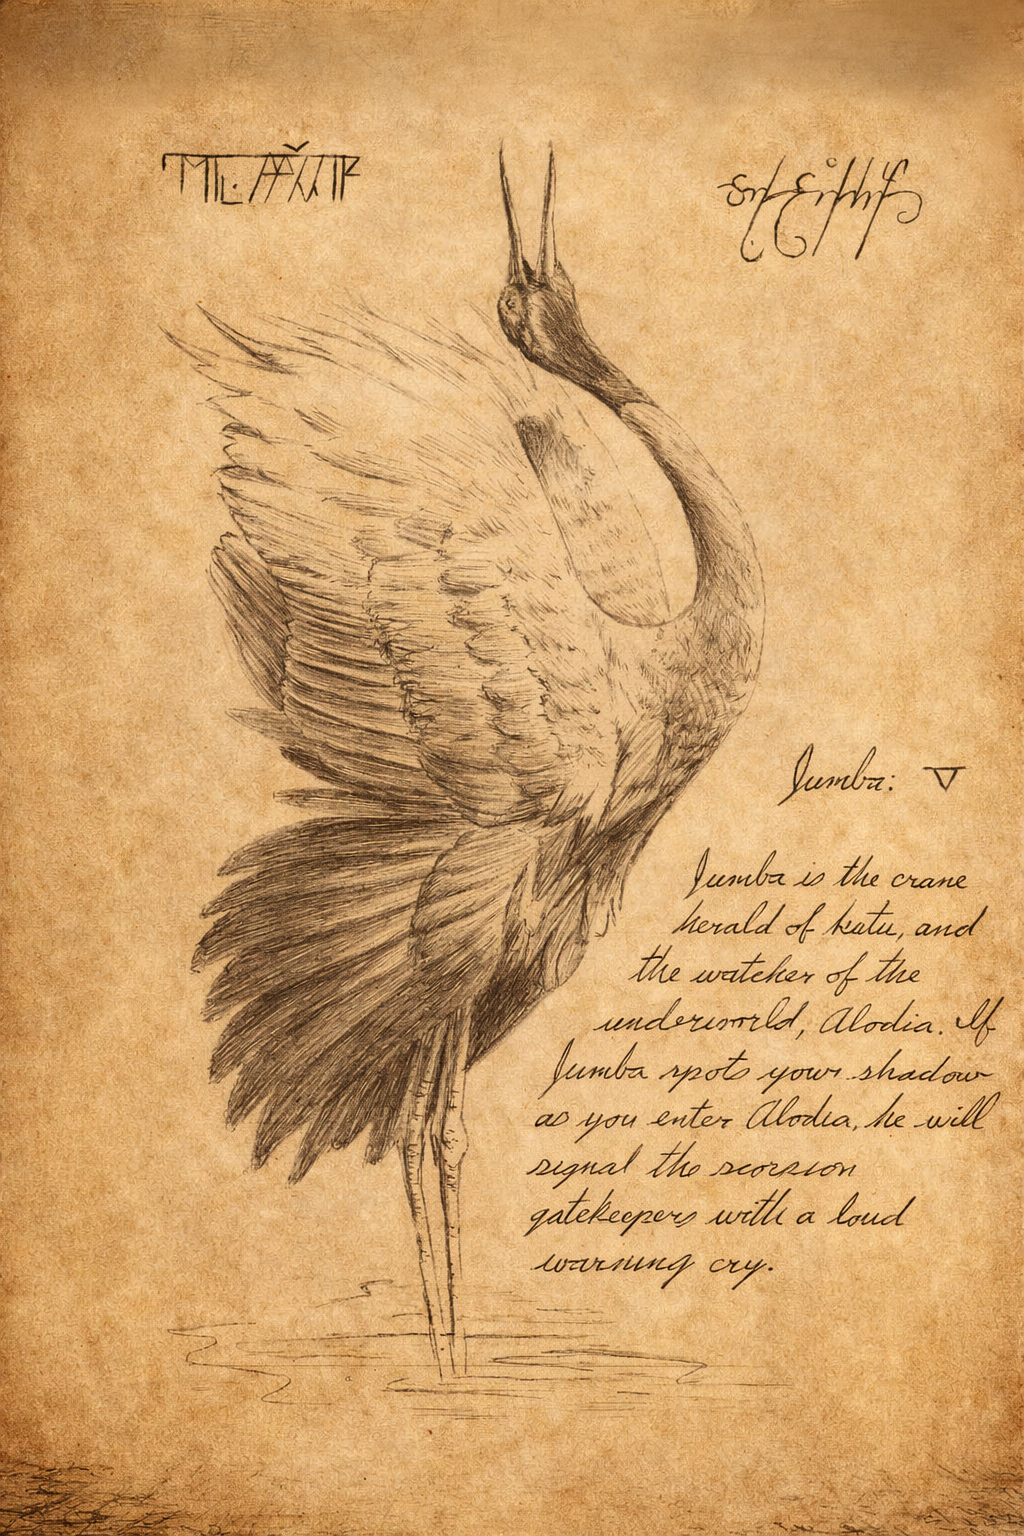 Jumba:
Jumba is the crane
herald of katu, and
the watcher of the
underworld, Alodia. If
Jumba spots your shadow
as you enter Alodia, he will
signal the scorpion
gatekeepers with a loud
warning cry.